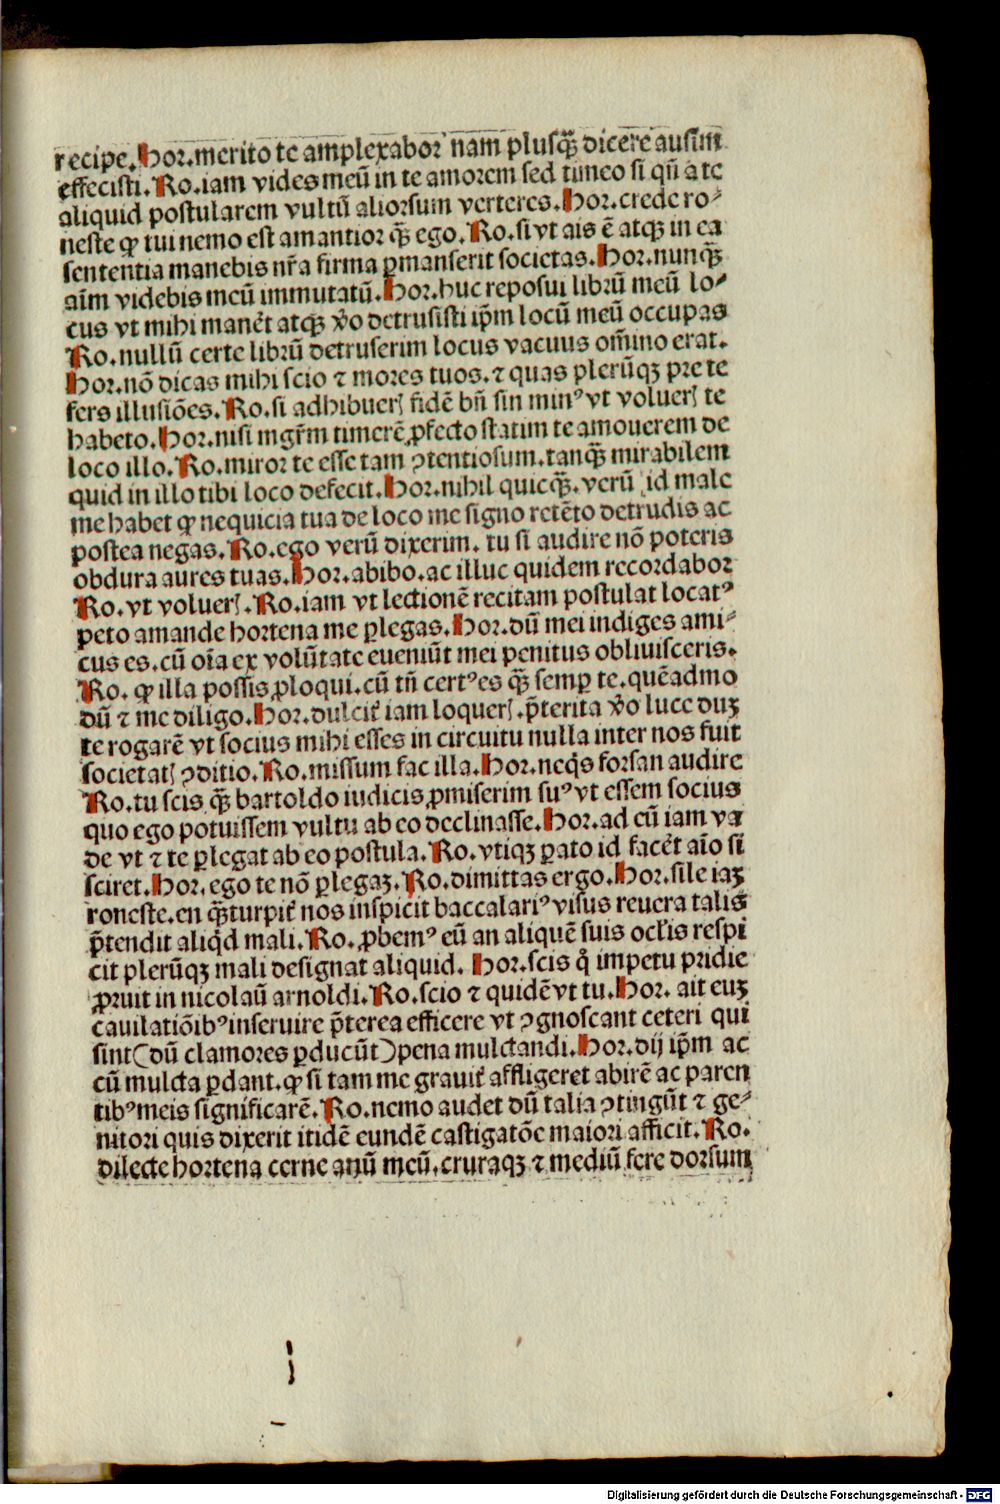 recipe. Hor. merito te amplexabor nam plusq̃ꝫ dicere ausim
effecisti. Ro. iam vides meū in te amorem sed timeo si qn̄ a te
aliquid postularem vultū aliorsum verteres. Hor. crede ro⸗
neste ꝙ tui nemo est amantior q̃ꝫ ego. Ro. si vt ais ē atqꝫ in ea
sententia manebis nr̄a firma ꝑmanserit societas. Hor. nunq̃ꝫ
aīm videbis meū immutatū. Hor. huc reposui librū meū lo⸗
cus vt mihi manēt atqꝫ v̊o detrusisti ip̄m locū meū occupas
Ro. nullū certe librū detruserim locus vacuus om̄ino erat.
Hor. nō dicas mihi scio ⁊ mores tuos. ⁊ quas plerūqꝫ pre te
fers illusiōes. Ro. si adhibuerꝭ fidē bn̄ sin minꝰ vt voluerꝭ te
habeto. Hor. nisi mgr̄m timerē ꝓfecto statim te amouerem de
loco illo. Ro. miror te esse tam ꝯtentiosum. tanq̃ꝫ mirabilem
quid in illo tibi loco defecit. Hor. nihil quicq̃ꝫ. verū id male
me habet ꝙ nequicia tua de loco me signo retēto detrudis ac
postea negas. Ro. ego verū dixerim. tu si audire nō poteris
obdura aures tuas. Hor. abibo. ac illuc quidem recordabor
Ro. vt voluerꝭ. Ro. iam vt lectionē recitam postulat locatꝰ
peto amande hortena me ꝑlegas. Hor. dū mei indiges ami⸗
cus es. cū oīa ex volūtate eueniūt mei penitus obliuisceris.
Ro. ꝙ illa possis ꝓloqui. cū tn̄ certꝰ es q̃ꝫ semꝑ te. quēadmo
dū ⁊ me diligo. Hor. dulcit̉ iam loquerꝭ. p̄terita v̊o luce duꝫ
te rogarē vt socius mihi esses in circuitu nulla inter nos fuit
societatꝭ ꝯditio. Ro. missum fac illa. Hor. neq̄s forsan audire
Ro. tu scis q̃ꝫ bartoldo iudicis ꝓmiserim suꝰ vt essem socius
quo ego potuissem vultu ab eo declinasse. Hor. ad eū iam va
de vt ⁊ te ꝑlegat ab eo postula. Ro. vtiqꝫ ꝑato id facēt aīo si
sciret. Hor. ego te nō ꝑlegaꝫ. Ro. dimittas ergo. Hor. sile iaꝫ
roneste. en q̃ꝫ turpit̉ nos inspicit baccalariꝰ visus reuera talis
p̄tendit aliq̇d mali. Ro. ꝓbemꝰ eū an aliquē suis ocl̉is respi
cit plerūqꝫ mali designat aliquid. Hor. scis q̇ impetu pridie
ꝓruit in nicolaū arnoldi. Ro. scio ⁊ quidē vt tu. Hor. ait euꝫ
cauilatiōibꝰ inseruire p̄terea efficere vt ꝯgnoscant ceteri qui
sint (dū clamores ꝑducūt) pena mulctandi. Hor. dij ip̄m ac
cū mulcta ꝑdant. ꝙ si tam me grauit̉ affligeret abirē ac paren
tibꝰ meis significarē. Ro. nemo audet dū talia ꝯtingūt ⁊ ge⸗
nitori quis dixerit itidē eundē castigatōe maiori afficit. Ro.
dilecte hortena cerne anū meū. cruraqꝫ ⁊ mediū fere dorsum
Digitalisierung gefördert durch die Deutsche Forschungsgemeinschaft - DFG